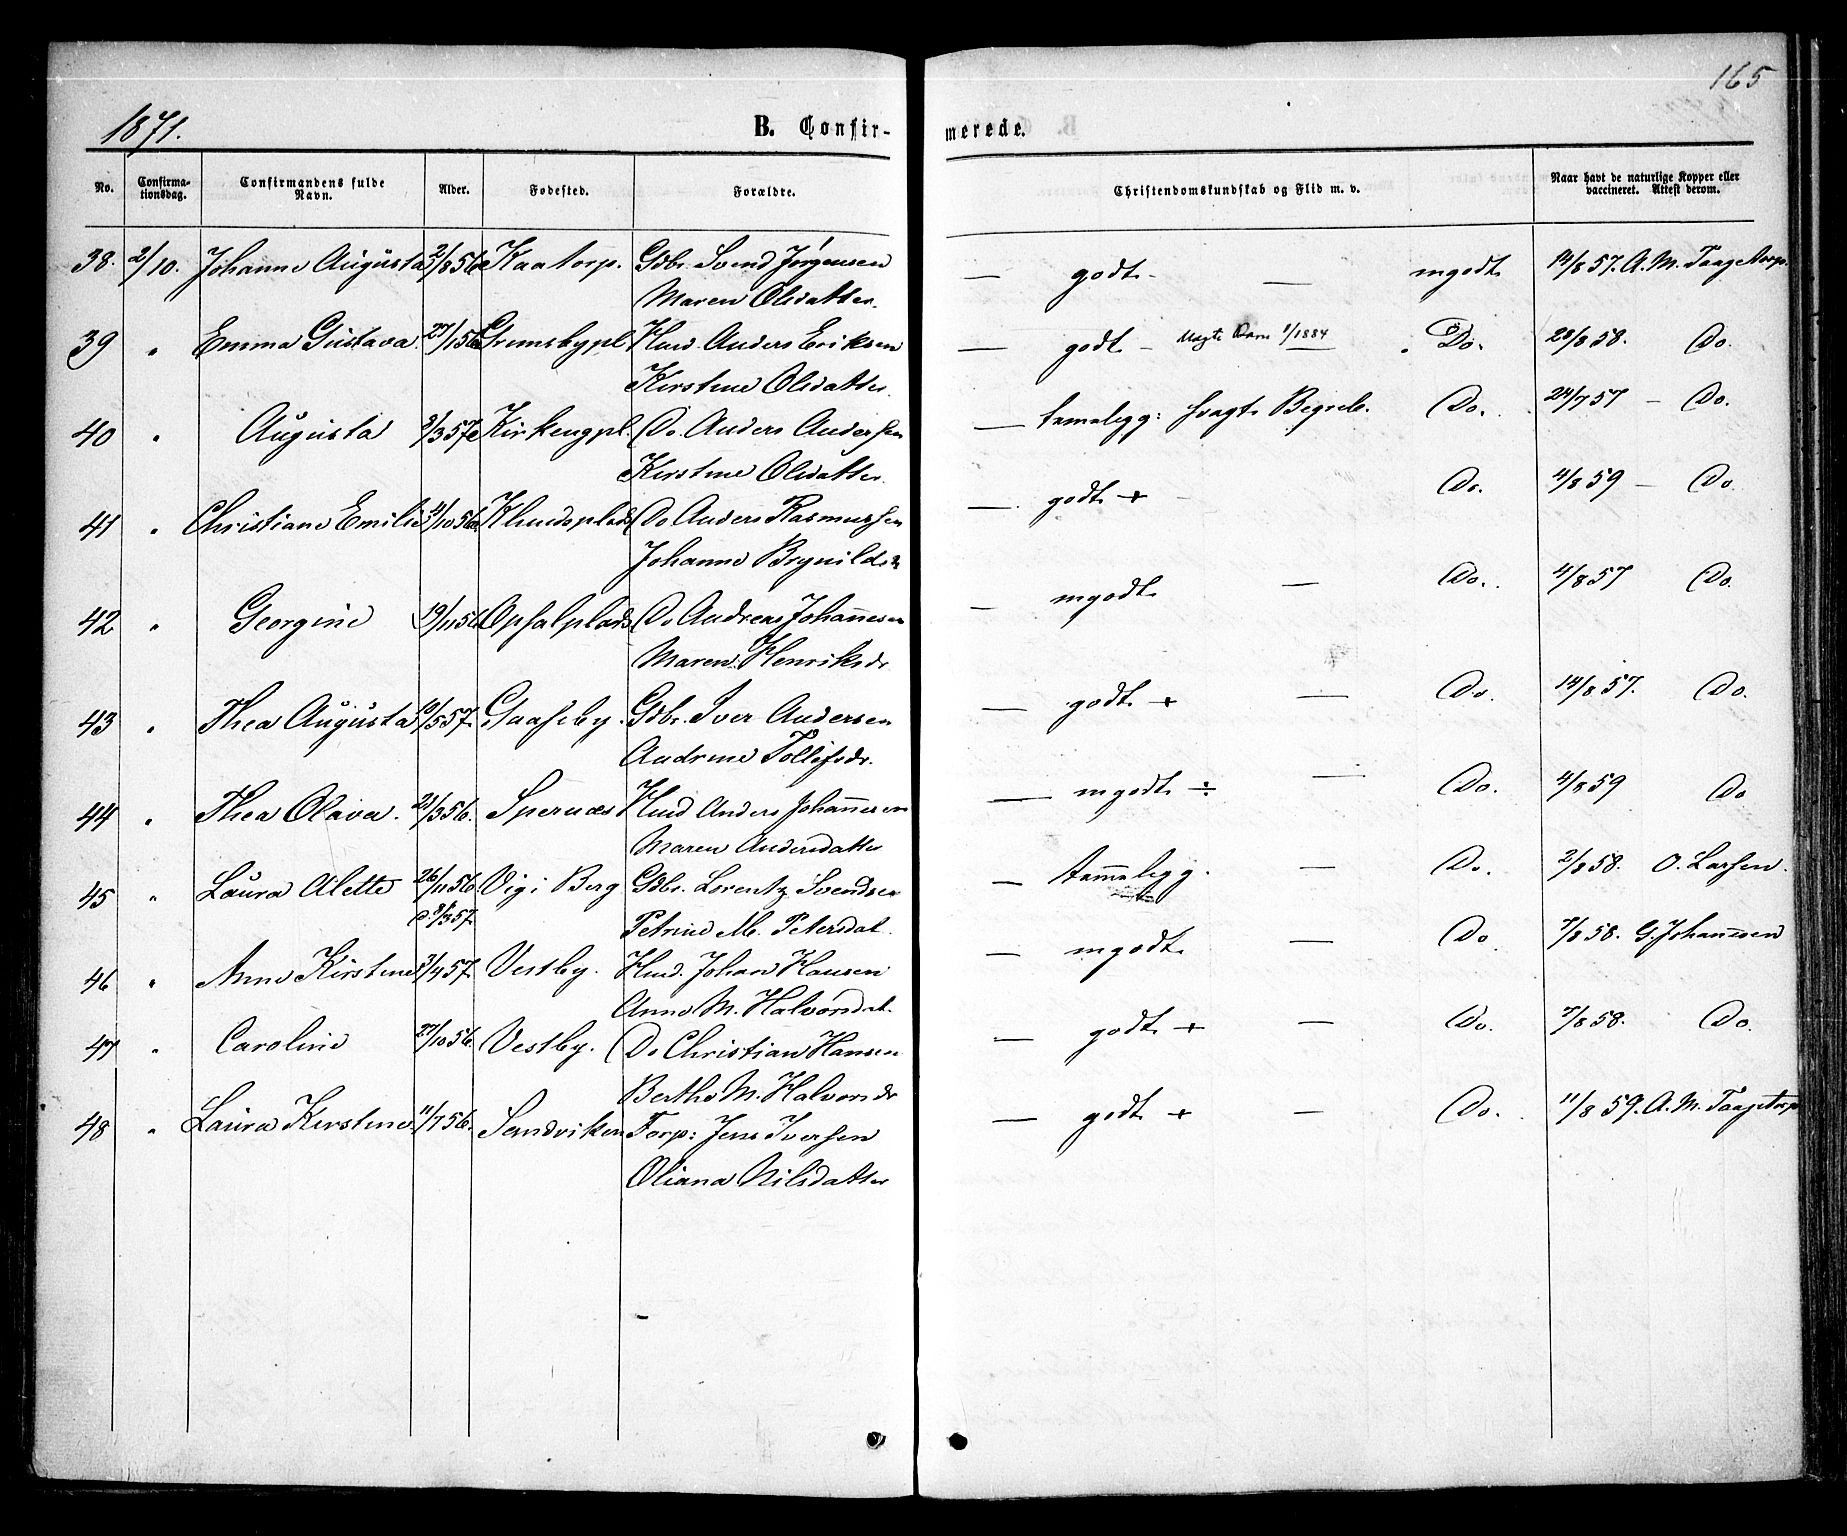 165
1871.
B. Confir-
merede.
No.
Confirma-
tionsdag.
Confirmandens fulde
Navn.
Alder.
Fødested.
Forældre.
Christendomskundskab og Flid m. v.
Naar havt de naturlige Kopper eller
vaccineret. Attest derom.
38. 2/10. Johanne Augusta 2/8 56 Kaatorp. Gdbr. Svend Jørgensen — godt - — mgodt 14/8 57. A. M. Taagetorp.
Maren Olsdatter.
39 " Emma Gustava. 27/1 56 Grimsbypl. Husm. Anders Eriksen — godt - 1/1884 — Do. 28/8 58. Do.
Kirstine Olsdatter.
40 " Augusta 3/3 57 Kirkengpl. Do Anders Andersen — temalegg: svagt Begreb. Do. 24/7 57 — Do.
Kirstine Olsdatter.
41 " Christiane Emilie 11/10 56 Klundsplads Do Anders Rasmussen — godt + - Do. 4/8 59 — Do.
Johanne Brynilds
42 " Georgine 19/11 56 Opsalplads Do Andreas Johannesen — mgodt — Do. 4/8 57 Do.
Maren Henriksdr
43 " Thea Augusta 10/5 57. Gaaseby. Gdbr. Iver Andersen — godt + — Do. 14/8 57. Do.
Andrine Tollefsdr.
44 " Thea Olava. 21/3 56. Spernæs Husm Anders Johannesen — mgodt ÷ — Do. 4/8 59 Do
Maren Andersdatter
45 " Laura Alette 26/11 56. Vig i Berg Gdbr. Lorentz Svendsen — temmelegg. — Do. 2/8 58. O. Larsen.
d 8/3 57. Petrine M. Petersdat.
46 " Anne Kirstine 3/4 57. Vestby. Husm. Johan Hansen — mgodt — Do 7/8 58. G. Johannesen
Anne M. Halvorsdat.
47 " Caroline 27/10 56. Vestby. Do Christian Hansen — godt + — Do. 7/8 58. Do.
Berthe M. Halvorsdr
48 " Laura Kirstine 11/7 56. Sandviken Forp: Jens Iversen — godt + — Do. 11/8 59. A. M. Taagetorp
Oliana Nilsdatter